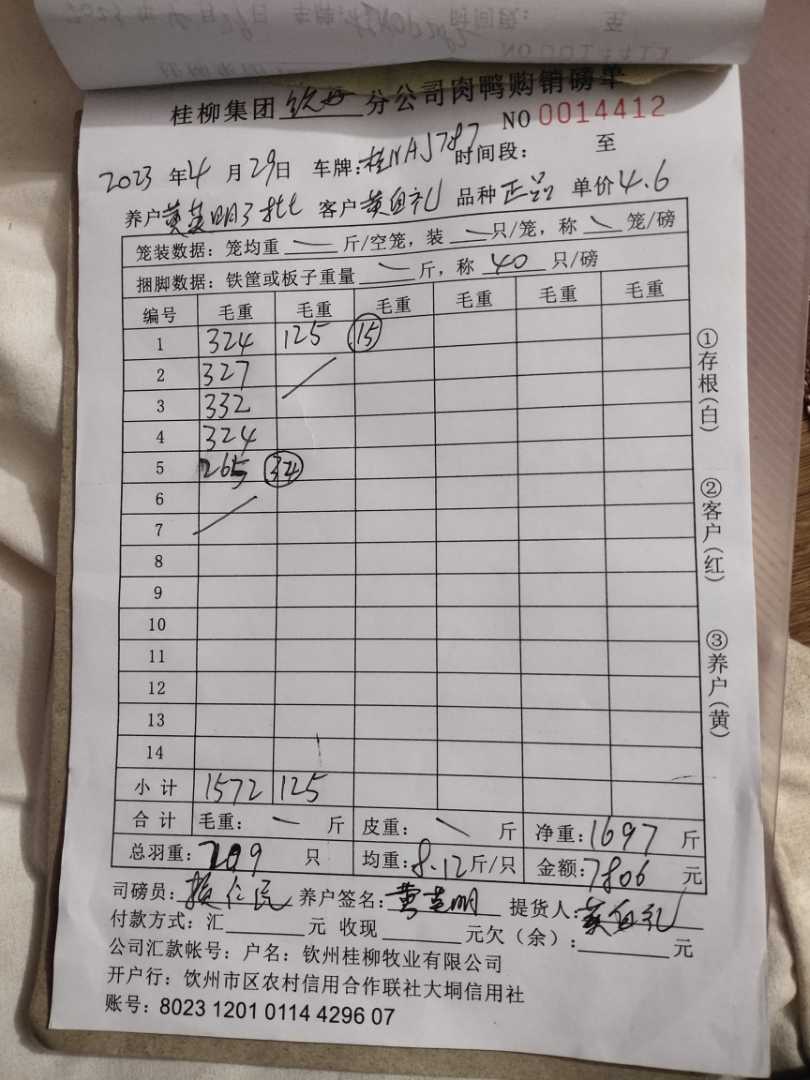 桂柳集团 钦州 分公司肉鸭购销磅单
NO 0014412
2023 年 4 月 29 日 车牌: 桂NAJ787 时间段: 至
养户 黄 明 客户 黄 礼 品种 正品 单价 4.6
笼装数据: 笼均重 斤/空笼, 装 只/笼, 称 笼/磅
捆脚数据: 铁筐或板子重量 斤, 称 40 只/磅
编号 毛重 毛重 毛重 毛重 毛重 毛重
1 324 125 15
2 327
3 332
4 324
5 265 34
6
7
8
9
10
11
12
13
14
小计 1572 125
合计 毛重: 斤 皮重: 斤 净重: 1697 斤
总羽重: 209 只 均重: 8.12 斤/只 金额: 7806 元
司磅员: 养户签名: 黄 明 提货人: 黄 礼
付款方式: 汇 元 收现 元欠(余): 元
公司汇款帐号: 户名: 钦州桂柳牧业有限公司
开户行: 钦州市区农村信用合作联社大垌信用社
账号: 8023 1201 0114 4296 07
①存根(白)
②客户(红)
③养户(黄)